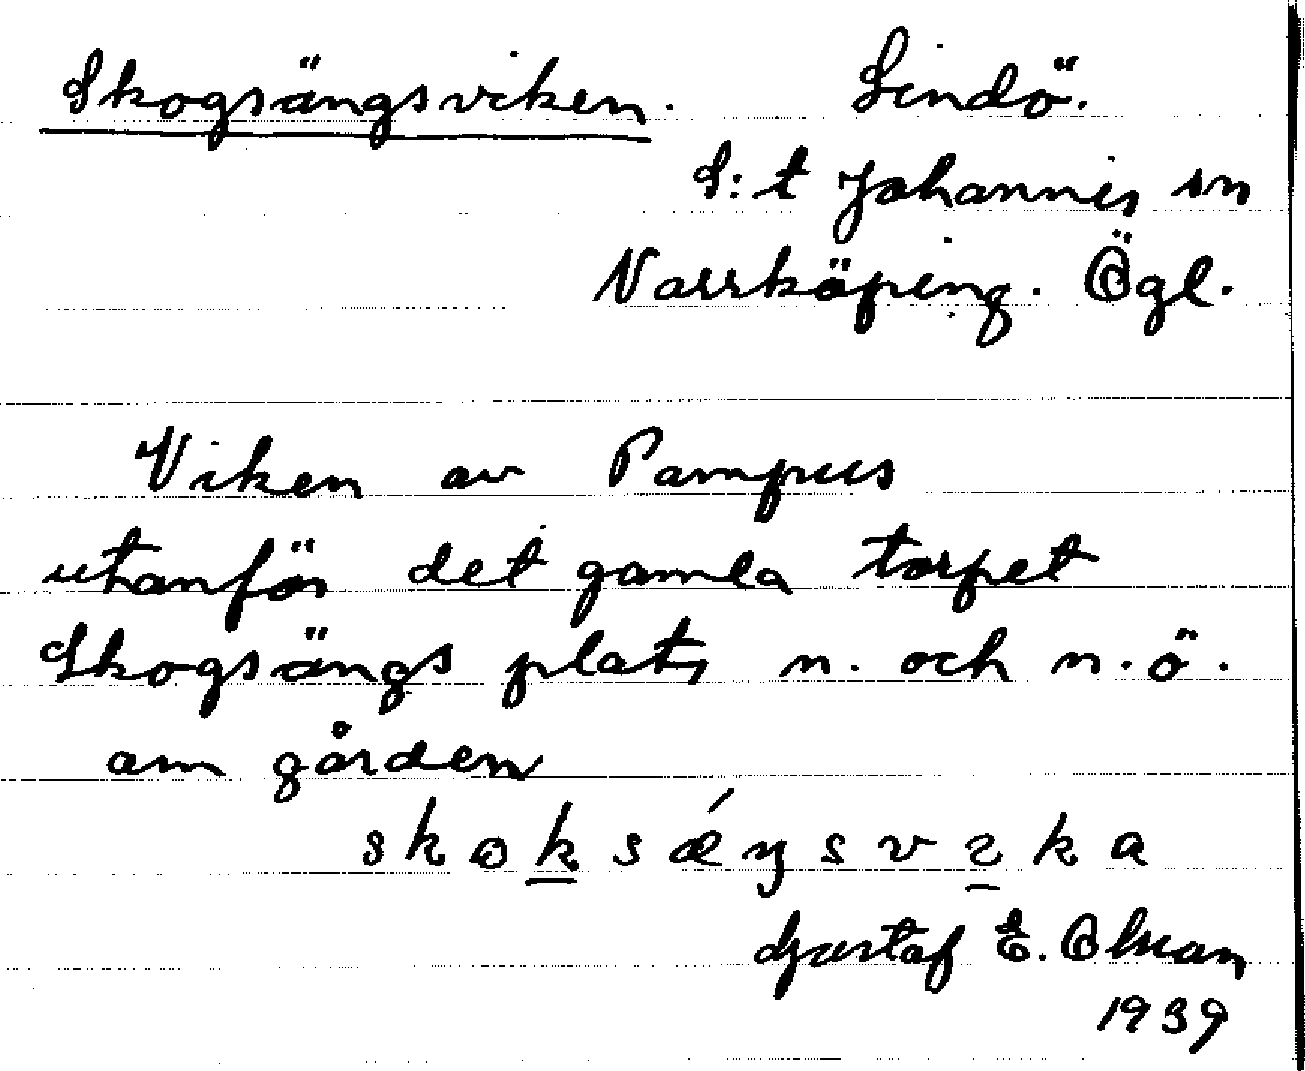 Skogsängsviken. Lindö.
S:t Johannis sn
Norrköping. Ögl.
Viken av Pampus
utanför det gamla torpet
Skogsängs plats n. och n.ö.
om gården
skoksǽŋsvika
Gustaf E. Ohman
1939